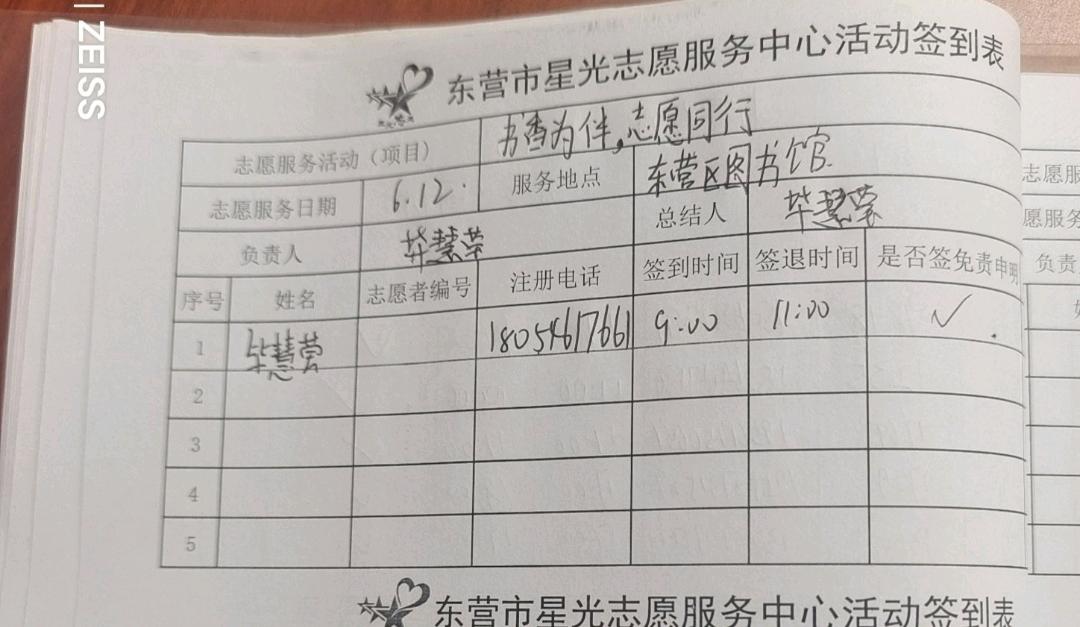 ZEISS
东营市星光志愿服务中心活动签到表
志愿服务活动（项目） 书香为伴，志愿同行
志愿服务日期 6.12. 服务地点 东营区图书馆
负责人 毕慧荣 总结人 毕慧荣
序号 姓名 志愿者编号 注册电话 签到时间 签退时间 是否签免责申明
1 毕慧荣 18054617661 9:00 11:00 ✓
2
3
4
5
东营市星光志愿服务中心活动签到表
志愿服
愿服务
负责